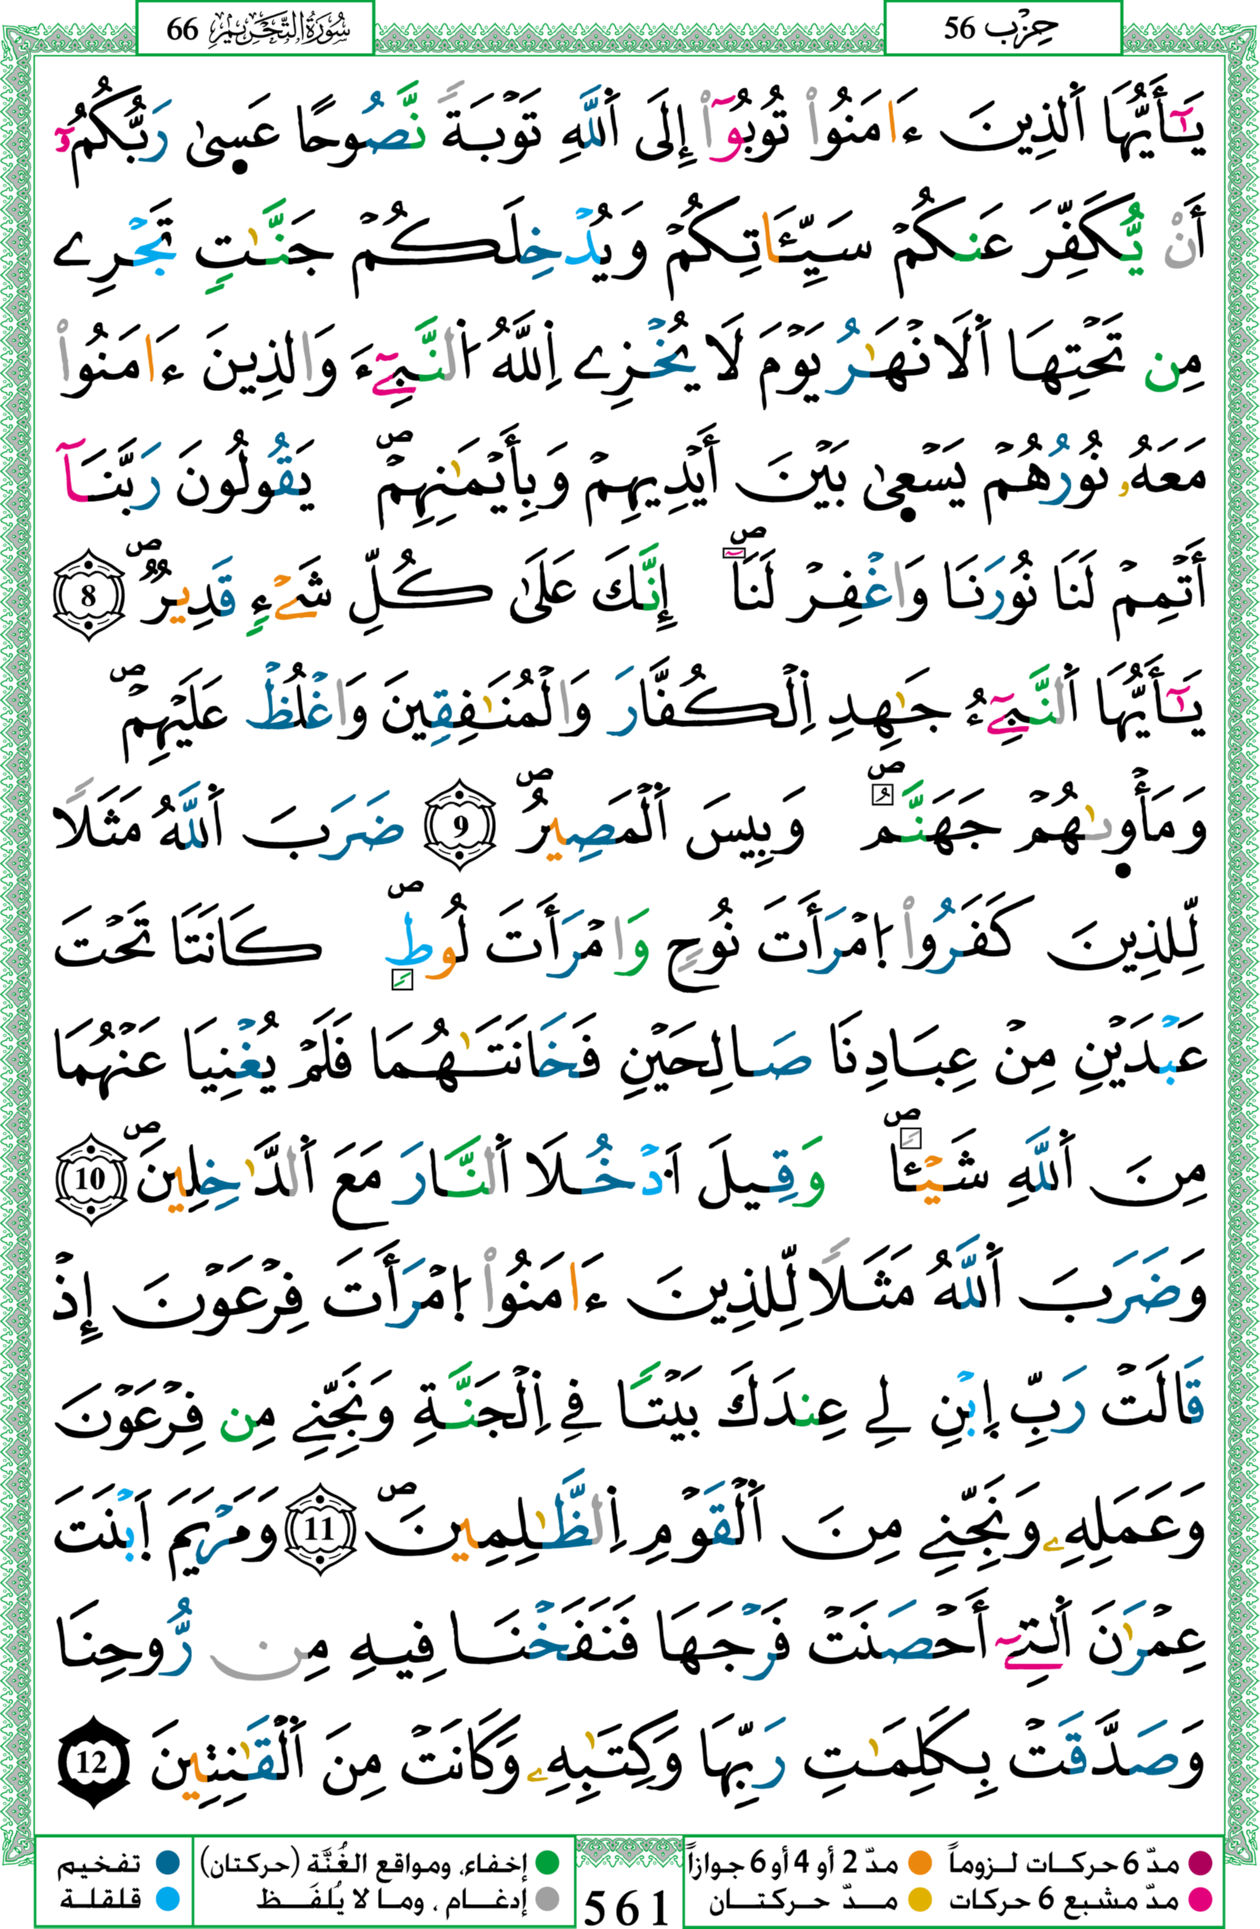 حِزْب 56
سُورَةُ التَّحْرِيمِ 66
يَٰٓأَيُّهَا اَ۬لذِينَ ءَامَنُواْ تُوبُوٓاْ إِلَى اَ۬للَّهِ تَوْبَةٗ نَّصُوحاً عَس۪يٰ رَبُّكُمُۥٓ
أَنْ يُّكَفِّرَ عَنكُمْ سَيِّـَٔاتِكُمْ وَيُدْخِلَكُمْ جَنَّٰتٖ تَجْرِے
مِن تَحْتِهَا اَ۬لَانْهَٰرُ يَوْمَ لَا يُخْزِے اِ۬للَّهُ اُ۬لنَّبِےٓءَ وَالذِينَ ءَامَنُواْ
مَعَهُۥ نُورُهُمْ يَسْع۪يٰ بَيْنَ أَيْدِيهِمْ وَبِأَيْمَٰنِهِمْۖ يَقُولُونَ رَبَّنَآ
أَتْمِمْ لَنَا نُورَنَا وَاغْفِرْ لَنَآۖ إِنَّكَ عَلَىٰ كُلِّ شَےْءٖ قَدِيرٞۖ 8
يَٰٓأَيُّهَا اَ۬لنَّبِےٓءُ جَٰهِدِ اِ۬لْكُفَّارَ وَالْمُنَٰفِقِينَ وَاغْلُظْ عَلَيْهِمْۖ
وَمَأْو۪يٰهُمْ جَهَنَّمُۖ وَبِيسَ اَ۬لْمَصِيرُۖ 9 ضَرَبَ اَ۬للَّهُ مَثَلاٗ
لِّلذِينَ كَفَرُواْ اُ۪مْرَأَتَ نُوحٖ وَامْرَأَتَ لُوطٖۖ كَانَتَا تَحْتَ
عَبْدَيْنِ مِنْ عِبَادِنَا صَٰلِحَيْنِ فَخَانَتَٰهُمَا فَلَمْ يُغْنِيَا عَنْهُمَا
مِنَ اَ۬للَّهِ شَيْـٔاٗۖ وَقِيلَ اَ۟دْخُلَا اَ۬لنَّارَ مَعَ اَ۬لدَّٰخِلِينَۖ 10
وَضَرَبَ اَ۬للَّهُ مَثَلاٗ لِّلذِينَ ءَامَنُواْ اُ۪مْرَأَتَ فِرْعَوْنَ إِذْ
قَالَتْ رَبِّ اِ۪بْنِ لِے عِندَكَ بَيْتاٗ فِے اِ۬لْجَنَّةِ وَنَجِّنِے مِن فِرْعَوْنَ
وَعَمَلِهِۦ وَنَجِّنِے مِنَ اَ۬لْقَوْمِ اِ۬لظَّٰلِمِينَۖ 11 وَمَرْيَمَ اَ۪بْنَتَ
عِمْرَٰنَ اَ۬لتِےٓ أَحْصَنَتْ فَرْجَهَا فَنَفَخْنَا فِيهِ مِن رُّوحِنَا
وَصَدَّقَتْ بِكَلِمَٰتِ رَبِّهَا وَكِتَٰبِهِۦ وَكَانَتْ مِنَ اَ۬لْقَٰنِتِينَ 12
مدّ 6 حركات لـزوماً مدّ 2 أو 4 أو 6 جوازاً إخفاء، ومواقع الغُنَّة (حركتان) تفخيم
مدّ مشبع 6 حركات مـدّ حـركتـان إدغـام ، ومـا لا يُلفَـظ قلقلة
561